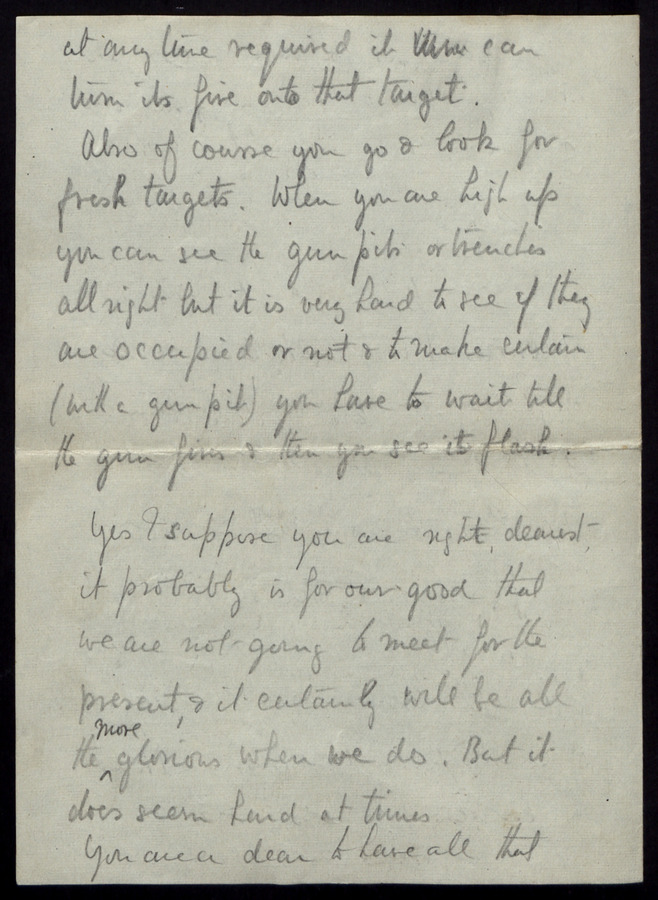 at any time required it can
turn its fire onto that target.
Also of course you go & look for
fresh targets. When you are high up
you can see the gun pits or trenches
all right but it is very hard to see if they
are occupied or not & to make certain
(with a gun pit) you have to wait till
the gun fires & then you see its flash.
Yes I suppose you are right, dearest,
it probably is for our good that
we are not going to meet for the
present, & it certainly will be all
more
the glorious when we do. But it
does seem hard at times
You are a dear to have all that